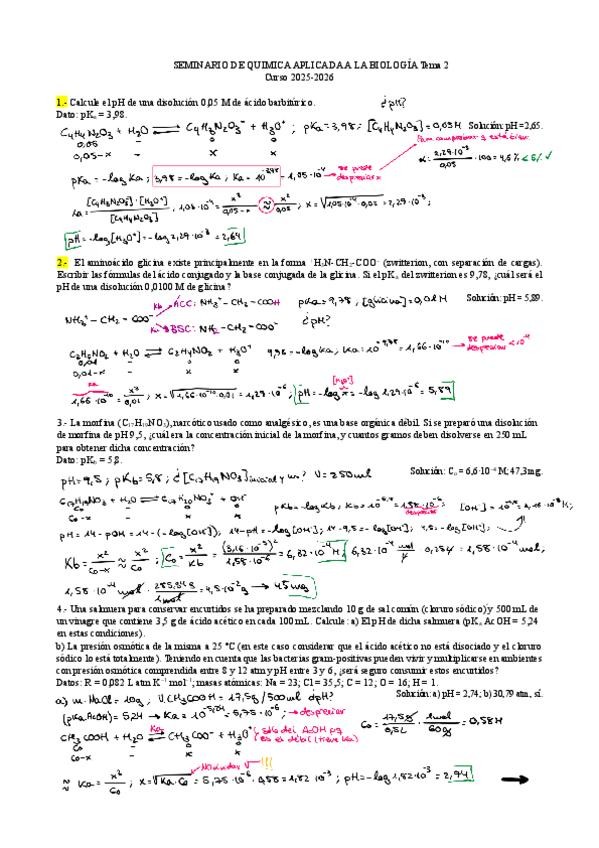 SEMINARIO DE QUIMICA APLICADA A LA BIOLOGÍA Tema 2
Curso 2025-2026
1.- Calcule el pH de una disolución 0,05 M de ácido barbitúrico. ¿pH?
Dato: pKₐ = 3,98.
C₄H₄N₂O₃ + H₂O ⇌ C₄H₃N₂O₃⁻ + H₃O⁺ ; pKa = 3,98 ; [C₄H₄N₂O₃] = 0,05M Solución: pH = 2,65.
0,05 - 0 0
0,05-x - x x
α: 2,29·10⁻³ / 0,05 · 100 = 4,5% < 5% ✓
pKa = -log Ka ; 3,98 = -log Ka ; Ka = 10⁻³·⁹⁸ = 1,05·10⁻⁴ → se puede despreciar x
Ka = [C₄H₃N₂O₃⁻]·[H₃O⁺] / [C₄H₄N₂O₃] ; 1,05·10⁻⁴ = x² / 0,05-x ≈ x² / 0,05 ; x = √1,05·10⁻⁴·0,05 = 2,29·10⁻³ ;
pH = -log[H₃O⁺] = -log 2,29·10⁻³ = 2,64
2.- El aminoácido glicina existe principalmente en la forma ⁺H₃N-CH₂-COO⁻ (zwitterion, con separación de cargas).
Escribir las fórmulas del ácido conjugado y la base conjugada de la glicina. Si el pKₐ del zwitterion es 9,78, ¿cuál será el
pH de una disolución 0,0100 M de glicina?
Kb ACC: NH₃⁺ - CH₂ - COOH pKa = 9,78 ; [glicina] = 0,01M Solución: pH = 5,89.
NH₃⁺ - CH₂ - COO⁻
Ka BSC: NH₂ - CH₂ - COO⁻ ¿pH?
C₂H₅NO₂ + H₂O ⇌ C₂H₄NO₂⁻ + H₃O⁺ 9,78 = -log Ka ; Ka = 10⁻⁹·⁷⁸ = 1,66·10⁻¹⁰ → se puede despreciar < 10⁻⁴
0,01 - 0 0
0,01-x - x x
1,66·10⁻¹⁰ = x² / 0,01 ; x = √1,66·10⁻¹⁰·0,01 = 1,29·10⁻⁶ ; pH = -log x = -log 1,29·10⁻⁶ = 5,89
3.- La morfina (C₁₇H₁₉NO₃), narcótico usado como analgésico, es una base orgánica débil. Si se preparó una disolución
de morfina de pH 9,5, ¿cuál era la concentración inicial de la morfina, y cuantos gramos deben disolverse en 250 mL
para obtener dicha concentración?
Dato: pKb = 5,8.
pH = 9,5 ; pKb = 5,8 ; ¿[C₁₇H₁₉NO₃] inicial y m? V = 250ml Solución: C₀ = 6,6·10⁻⁴ M; 47,3mg.
C₁₇H₁₉NO₃ + H₂O ⇌ C₁₇H₂₀NO₃⁺ + OH⁻ pKb = -log Kb ; Kb = 10⁻⁵·⁸ = 1,58·10⁻⁶ ; [OH⁻] = 10⁻⁴·⁵ = 3,16·10⁻⁵ M ;
C₀ - 0 0
C₀-x - x x
despreciar
pH = 14 - pOH = 14 - (-log[OH⁻]) ; 14 - pH = -log[OH⁻] ; 14 - 9,5 = -log[OH⁻] ; 4,5 = -log[OH⁻]
Kb = x² / C₀-x ≈ x² / C₀ ; C₀ = x² / Kb = (3,16·10⁻⁵)² / 1,58·10⁻⁶ = 6,32·10⁻⁴ M ; 6,32·10⁻⁴ mol/L · 0,25L = 1,58·10⁻⁴ mol ;
1,58·10⁻⁴ mol · 285,34g / 1mol = 4,5·10⁻²g → 45mg
4.- Una salmuera para conservar encurtidos se ha preparado mezclando 10 g de sal común (cloruro sódico) y 500 mL de
un vinagre que contiene 3,5 g de ácido acético en cada 100 mL. Calcule: a) El pH de dicha salmuera (pKₐ AcOH = 5,24
en estas condiciones).
b) La presión osmótica de la misma a 25 °C (en este caso considerar que el ácido acético no está disociado y el cloruro
sódico lo está totalmente). Teniendo en cuenta que las bacterias gram-positivas pueden vivir y multiplicarse en ambientes
con presión osmótica comprendida entre 8 y 12 atm y pH entre 3 y 6, ¿será seguro consumir estos encurtidos?
Datos: R = 0,082 L atm K⁻¹ mol⁻¹; masas atómicas: Na = 23; Cl = 35,5; C = 12; O = 16; H = 1.
Solución: a) pH = 2,74; b) 30,79 atm, sí.
a) m. NaCl = 10g ; V. CH₃COOH = 17,5g/500ml ¿pH?
(pKa AcOH) = 5,24 → Ka = 10⁻⁵·²⁴ = 5,75·10⁻⁶ ; → despreciar C₀ = 17,5g / 0,5L · 1mol / 60g = 0,58M
CH₃COOH + H₂O ⇌ CH₃COO⁻ + H₃O⁺
C₀ - 0 0
C₀-x - x x
≈ Ka = x² / C₀ ; x = √Ka·C₀ = 5,75·10⁻⁶·0,58 = 1,82·10⁻³ ; pH = -log 1,82·10⁻³ = 2,74